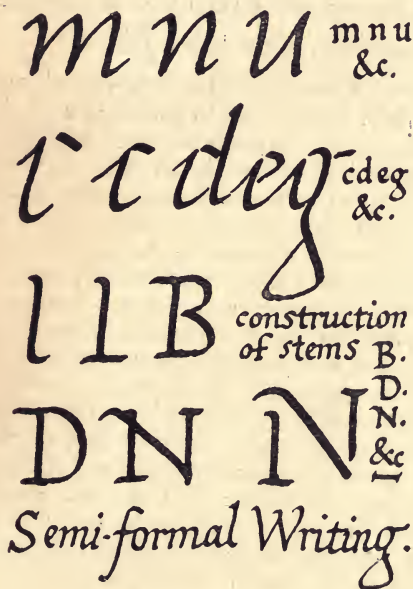 m n u m n u
&c.
ı ` c d e g c d e g
&c.
l l B construction
of stems B.
D.
N.
&c
D N N
Semi-formal Writing.